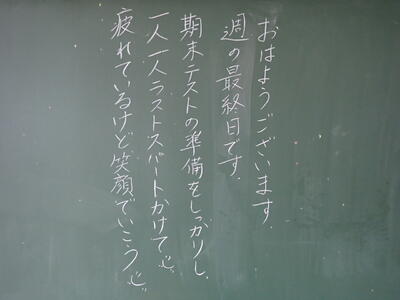 おはようございます.
週の最終日です.
期末テストの準備をしっかりし.
一人一人ラストスパートかけて
疲れているけど笑顔でいこう